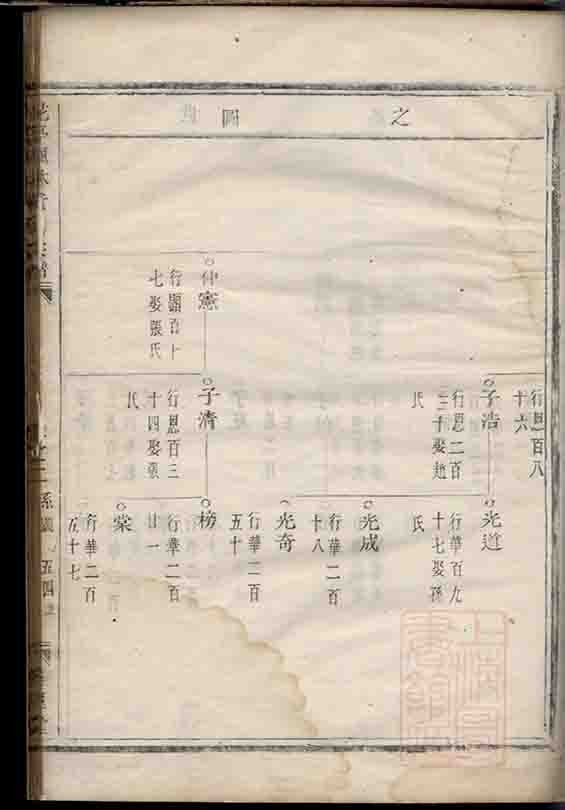 之
圖
世
行恩一百八
十六
子浩
行恩二百
三十娶趙
氏
光道
行華百九
十七娶孫
氏
光成
行華二百
十八
光奇
行華二百
五十
仲憲
行顯百十
七娶張氏
子清
行恩百三
十四娶張
氏
榜
行華二百
廿一
棠
行華二百
五十七
系圖
五四
上海圖
書館藏